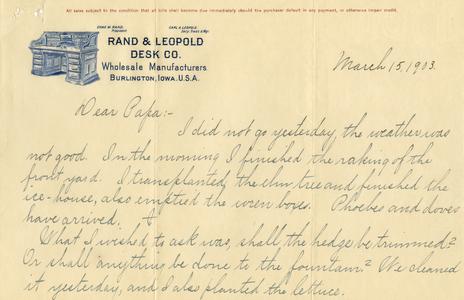 All sales subject to the condition that all bills shall become due immediately should the purchaser default in any payment, or otherwise impair credit.
CHAS W. RAND, CARL A. LEOPOLD,
President Sec'y Treas & Mgr.
RAND & LEOPOLD
DESK CO.
Wholesale Manufacturers
BURLINGTON, IOWA, U.S.A.
March 15, 1903.
Dear Papa:-
I did not go yesterday, the weather was
not good. In the morning I finished the raking of the
front yard. I transplanted the elm tree and finished the
ice-house, also emptied the wren boxes. Phoebes and doves
have arrived.
What I wished to ask was, shall the hedge be trimmed?
Or shall anything be done to the fountain? We cleaned
it yesterday, and I also planted the lettuce.